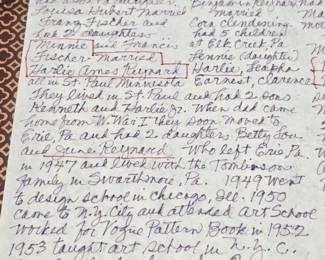 Louise Hubert Married
Franz Fischer and
had 2 daughters
Minnie and Francis
Fischer. Married
Harlie Ames Reynard
all in St. Paul Minnesota
Married
Cora Clendening
had 5 children
at Elk Creek, Pa
Fennie (daughter)
Harlie, Ralph
Earnest, Clarence
They lived in St. Paul and had 2 sons
Kenneth and Harlie Jr. When dad came
home from W. War I they soon moved to
Erie, Pa and had 2 daughters Betty Lou
and June Reynard. Who left Erie, Pa.
in 1947 and lived with the Tomlinson
family in Swarthmore, Pa. 1949 went
to design school in Chicago, Ill. 1950
came to N.Y. City and attended Art School
worked for Vogue Pattern Book in 1952
1953 taught art school in N.Y.C.